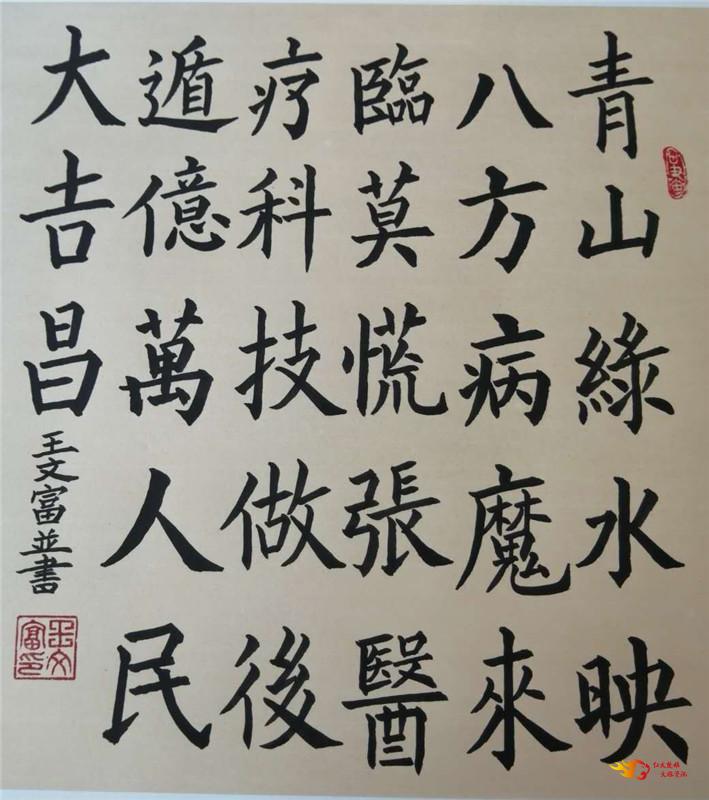 青山綠水映
八方病魔來
臨莫慌張醫
疗科技做後
遁億萬人民
大吉昌
王文富並書
王文富印